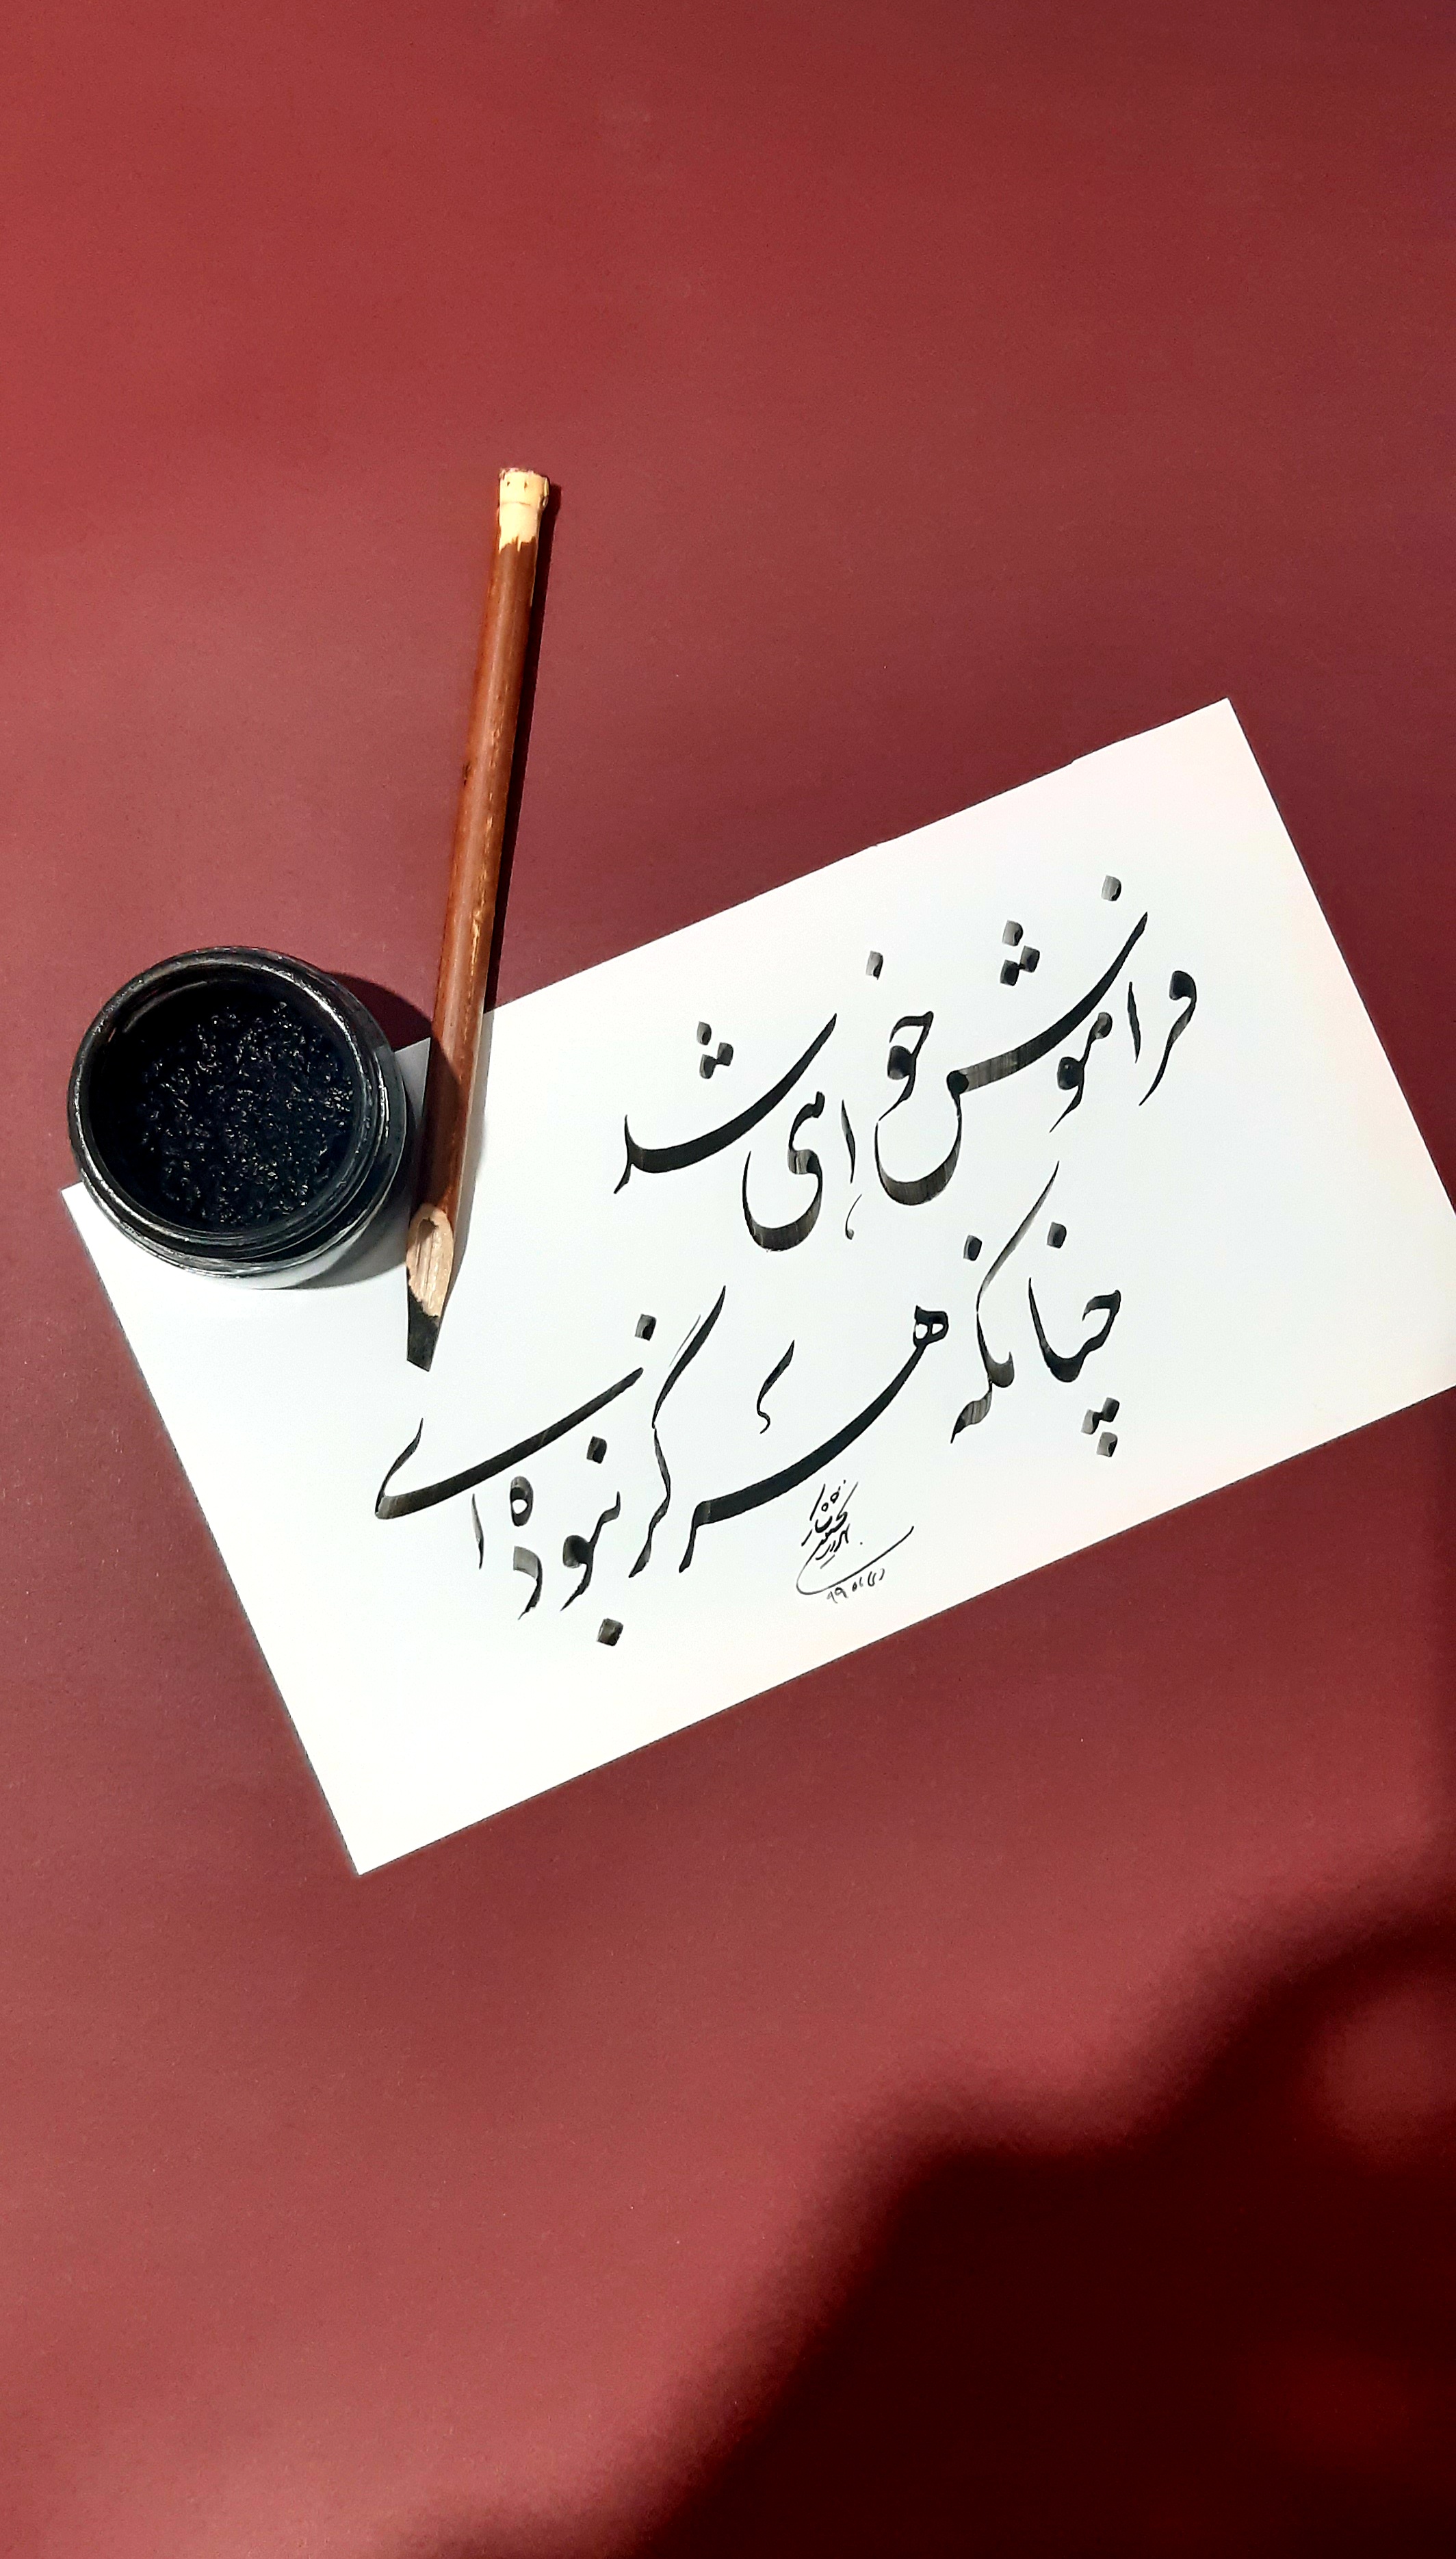 فراموش خواهی شد
چنانکه هرگز نبوده ای
دی ماه ۹۹